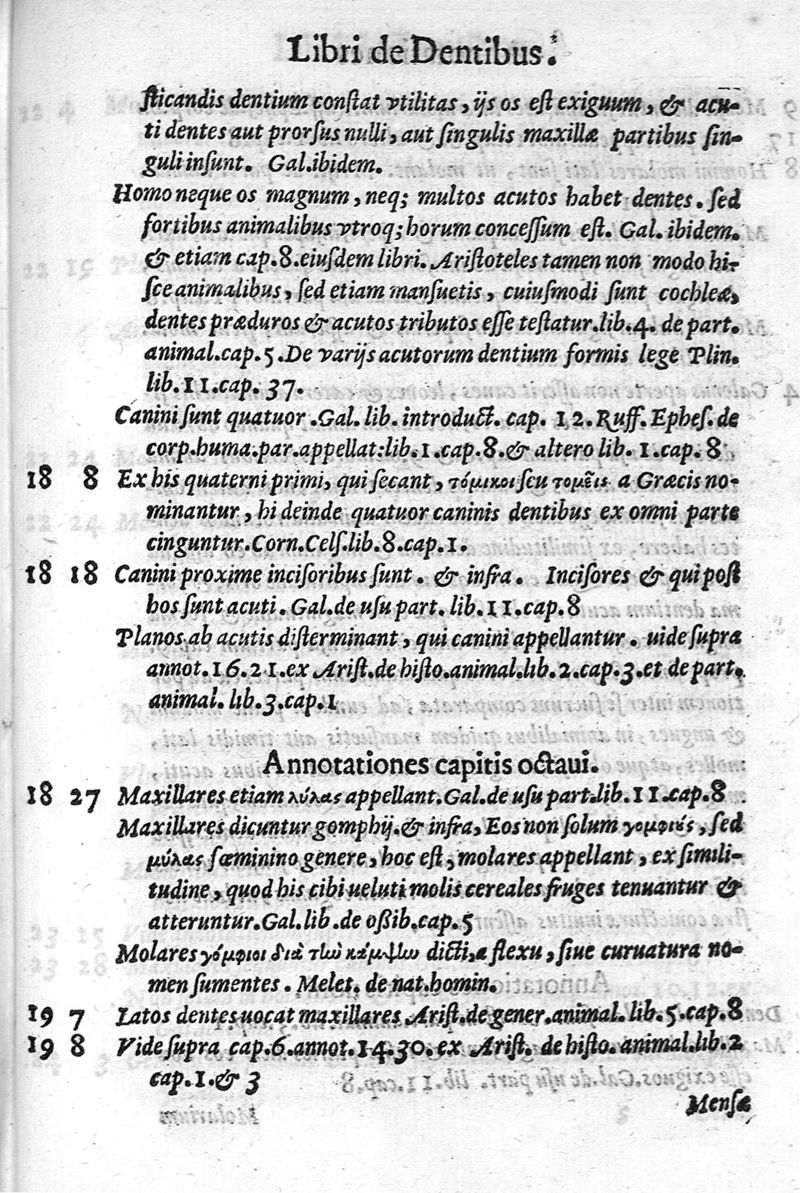 Libri de Dentibus.
sticandis dentium constat vtilitas, ijs os est exiguum, & acu-
ti dentes aut prorsus nulli, aut singulis maxillæ partibus sin-
guli insunt. Gal. ibidem.
Homo neque os magnum, neq; multos acutos habet dentes. sed
fortibus animalibus vtroq; horum concessum est. Gal. ibidem.
& etiam cap. 8. eiusdem libri. Aristoteles tamen non modo hi-
sce animalibus, sed etiam mansuetis, cuiusmodi sunt cochleæ,
dentes præduros & acutos tributos esse testatur. lib. 4. de part.
animal. cap. 5. De varijs acutorum dentium formis lege Plin.
lib. 11. cap. 37.
Canini sunt quatuor. Gal. lib. introduct. cap. 12. Ruff. Ephes. de
corp. huma. par. appellat: lib. 1. cap. 8. & altero lib. 1. cap. 8
18 8 Ex his quaterni primi, qui secant, τόμικοι seu τομεῖς a Græcis no-
minantur, hi deinde quatuor caninis dentibus ex omni parte
cinguntur. Corn. Cels. lib. 8. cap. 1.
18 18 Canini proxime incisoribus sunt. & infra. Incisores & qui post
hos sunt acuti. Gal. de usu part. lib. 11. cap. 8
Planos ab acutis disterminant, qui canini appellantur. uide supra
annot. 16. 21. ex Arist. de histo. animal. lib. 2. cap. 3. et de part.
animal. lib. 3. cap. 1
Annotationes capitis octaui.
18 27 Maxillares etiam λύλας appellant. Gal. de usu part. lib. 11. cap. 8
Maxillares dicuntur gomphij. & infra, Eos non solum γομφιούς, sed
μύλας fœminino genere, hoc est, molares appellant, ex simili-
tudine, quod his cibi ueluti molis cereales fruges tenuantur &
atteruntur. Gal. lib. de ossib. cap. 5
Molares γόμφιοι διὰ τὼ κάμψιν dicti, a flexu, siue curuatura no-
men sumentes. Melet. de nat. homin.
19 7 Latos dentes uocat maxillares Arist. de gener. animal. lib. 5. cap. 8
19 8 Vide supra cap. 6. annot. 14. 30. ex Arist. de histo. animal. lib. 2
cap. 1. & 3
Mensæ